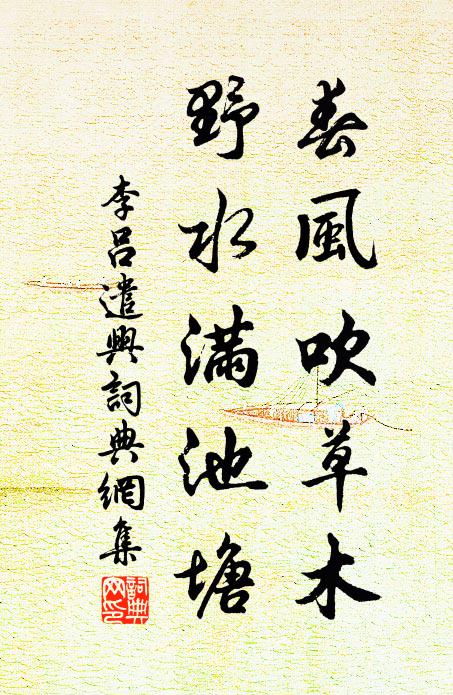 春風吹草木
野水滿池塘
李呂遣興詞典網集
詞典
网印